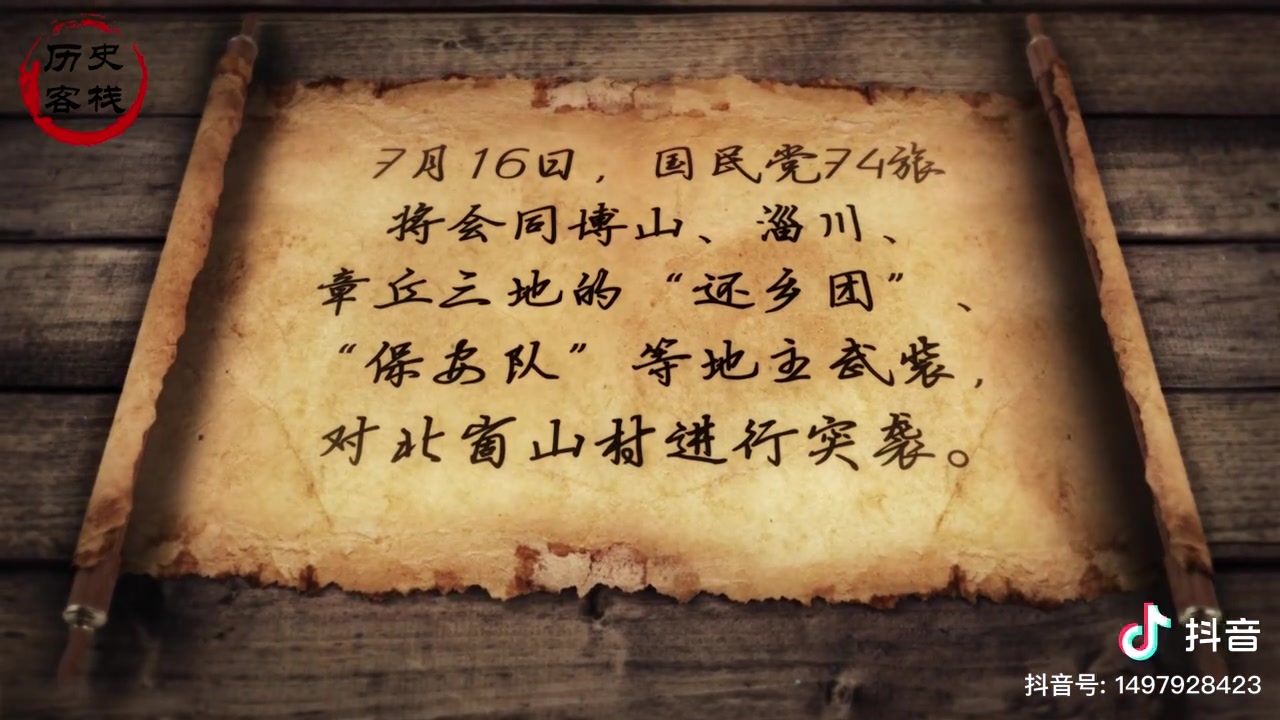 历史
客栈
7月16日，国民党74旅
将会同博山、淄川、
章丘三地的“还乡团”、
“保安队”等地主武装，
对北崮山村进行突袭。
抖音
抖音号: 1497928423